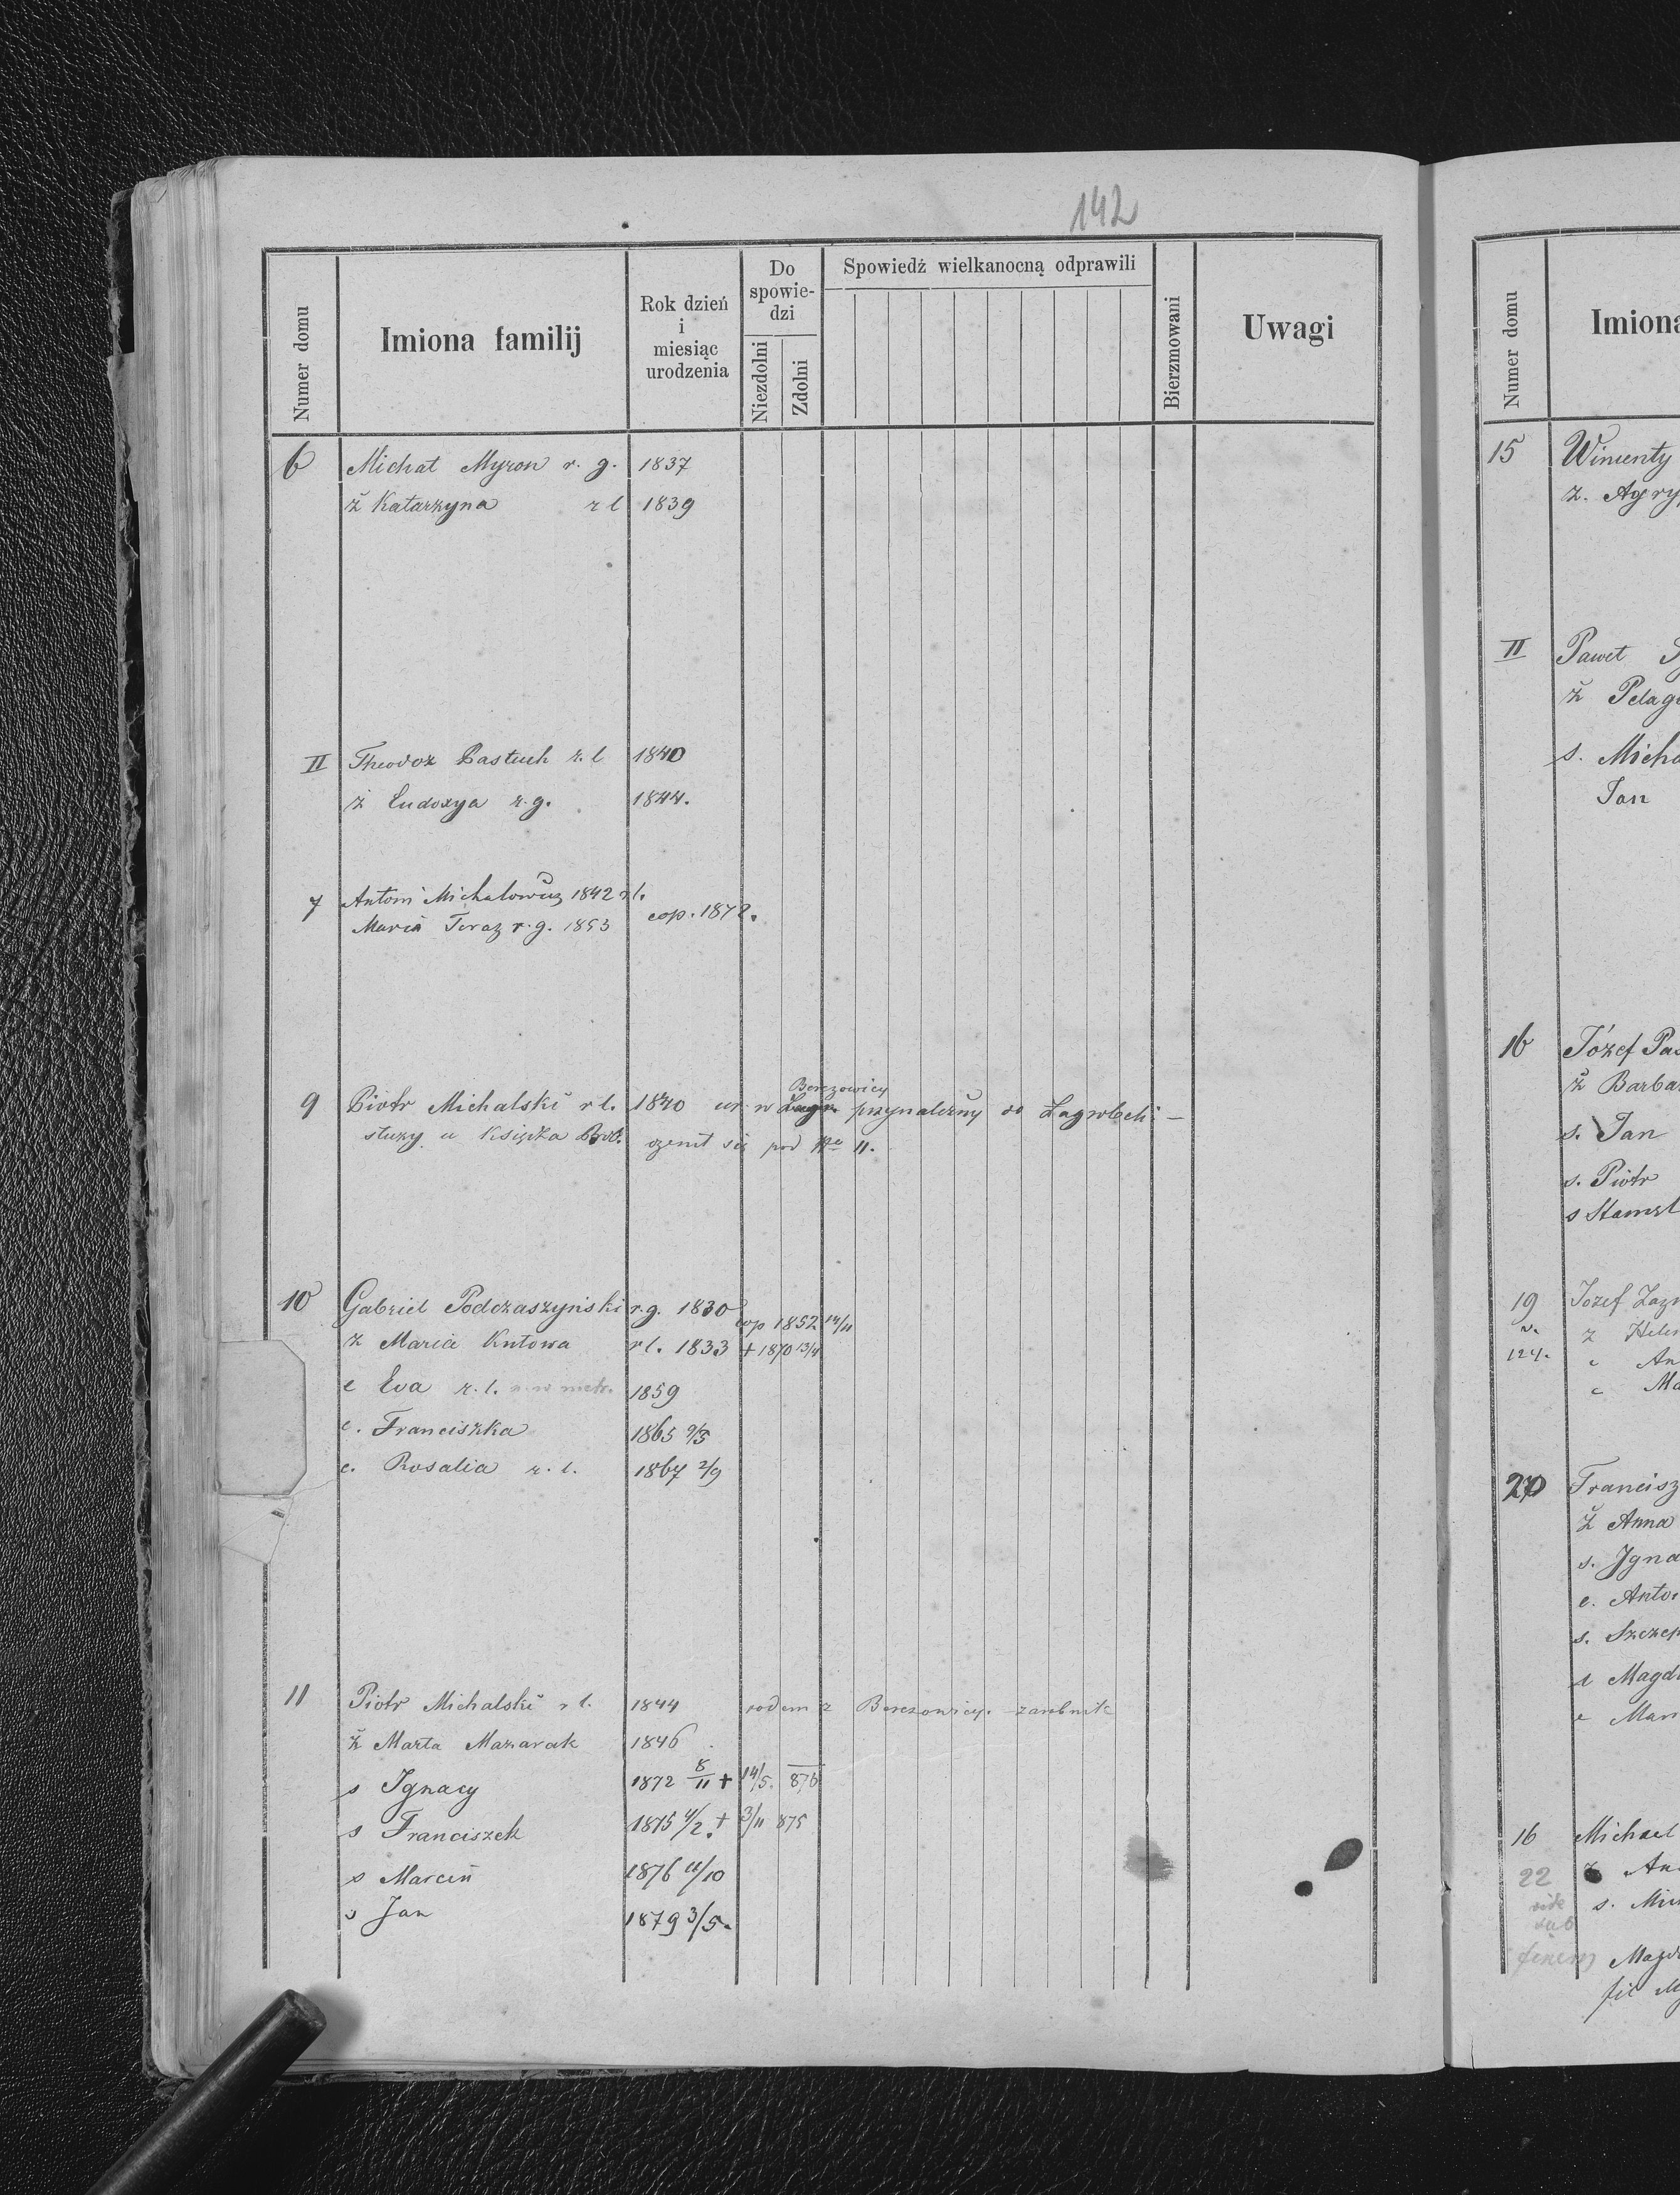 142
Numer domu
Imiona familij
Rok dzień i miesiąc urodzenia
Do spowiedzi
Niezdolni
Zdolni
Spowiedź wielkanocną odprawili
Bierzmowani
Uwagi
6 Michał Myron r. g. 1837
ż Katarzyna r l 1839
II Theodor Pastuch r. l 1840
ż Eudoxya r. g. 1844.
7 Antoni Michalowicz 1842 r l.
Maria Teraz r. g. 1853 cop. 1872.
Berezowicy
9 Piotr Michalski r l. 1840 ur. w Zagr. przynależny do Zagrobeli –
służy u Księdza ożenił się pod Nro 11.
10 Gabriel Podczaszyński r. g. 1830
cop 1852 14/11
ż Maria Kutowa r l. 1833 + 1870 13/4
c Eva r. l. 1859
c. Franciszka 1865 9/3
c. Rosalia r. l. 1867 2/9
11 Piotr Michalski r l. 1844 rodem z Berezowicy. zarobnik
ż Marta Mazarak 1846
s Ignacy 1872 8/11 + 14/5. 876
s Franciszek 1875 4/2. + 3/11 875
s Marcin 1876 11/10
s Jan 1879 3/5.
Numer domu
Imiona
15 Wincenty
ż. Agry
II Paweł
ż Pelag
s. Micha
Jan
16 Józef Pas
ż Barba
s. Jan
s. Piotr
s Stanisł
19 Józef Zagr
ż Hele
124. c An
c Ma
20 Francisz
ż Anna
s. Igna
c. Anto
s. Szczep
c Magd
c Mar
16 Michael
22 An
vide s. Mic
sub
finem Magd
fil M